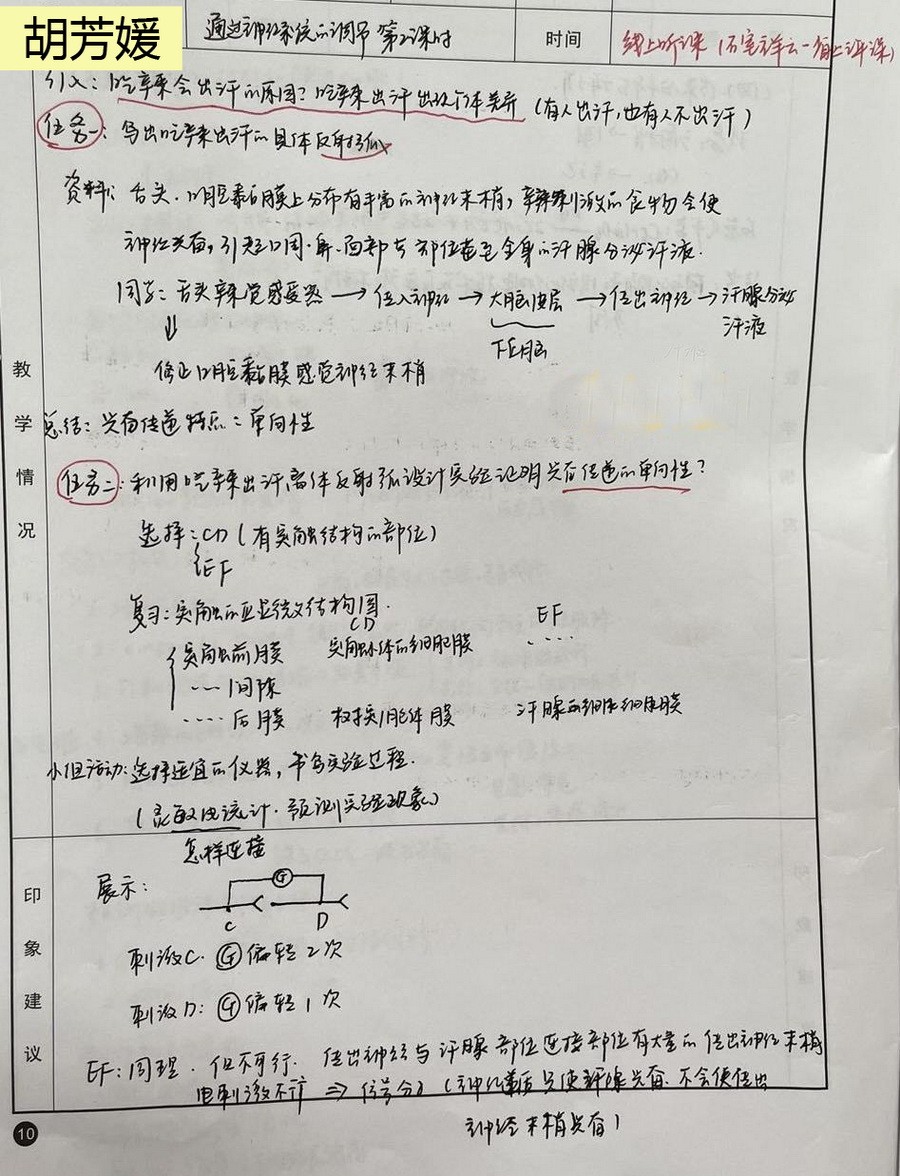 胡芳媛
通过神经系统的调节 第2课时
时间
线上听课
引入：吃辛辣会出汗的原因？吃辛辣出汗出现个体差异（有人出汗，也有人不出汗）
任务一：写出吃辛辣出汗的具体反射弧
资料：舌头、口腔黏膜上分布有丰富的神经末梢，辣刺激的食物会使
神经兴奋，引起口周、鼻、面部等部位甚至全身的汗腺分泌汗液．
同学：舌头辣觉感受器→传入神经→大脑皮层→传出神经→汗腺分泌
汗液
下丘脑
修正口腔黏膜感觉神经末梢
总结：兴奋传递特点：单向性
任务二：利用吃辛辣出汗离体反射弧设计实验证明兴奋传递的单向性？
选择：CD（有突触结构的部位）
EF
复习：突触的亚显微结构图．
CD EF
突触前膜 突触小体的细胞膜 ·····
··· 间隙
···· 后膜 树突/胞体膜 汗腺的细胞膜
小组活动：选择适宜的仪器，书写实验过程．
（灵敏电流计．预测实验现象）
怎样连接
展示：
G
C D
刺激C．G偏转2次
刺激D：G偏转1次
EF：同理．但不可行．传出神经与汗腺部位连接部位有大量的传出神经末梢
电刺激不行 ⇒ 信号分子（神经递质只使汗腺兴奋．不会使传出
神经末梢兴奋）
教学情况
印象建议
10